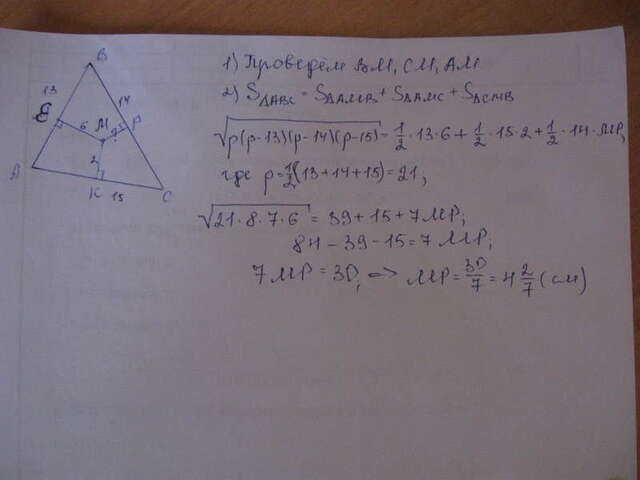 B
13
14
E
6
M
P
?
2
A
K
15
C
1) Проведём BM, CM, AM
2) S△ABC = S△AMB + S△AMC + S△CMB
√p(p-13)(p-14)(p-15) = 1/2 · 13 · 6 + 1/2 · 15 · 2 + 1/2 · 14 · MP,
где p = 1/2 (13+14+15) = 21;
√21·8·7·6 = 39 + 15 + 7MP;
84 - 39 - 15 = 7 MP;
7 MP = 30, => MP = 30/7 = 4 2/7 (см)